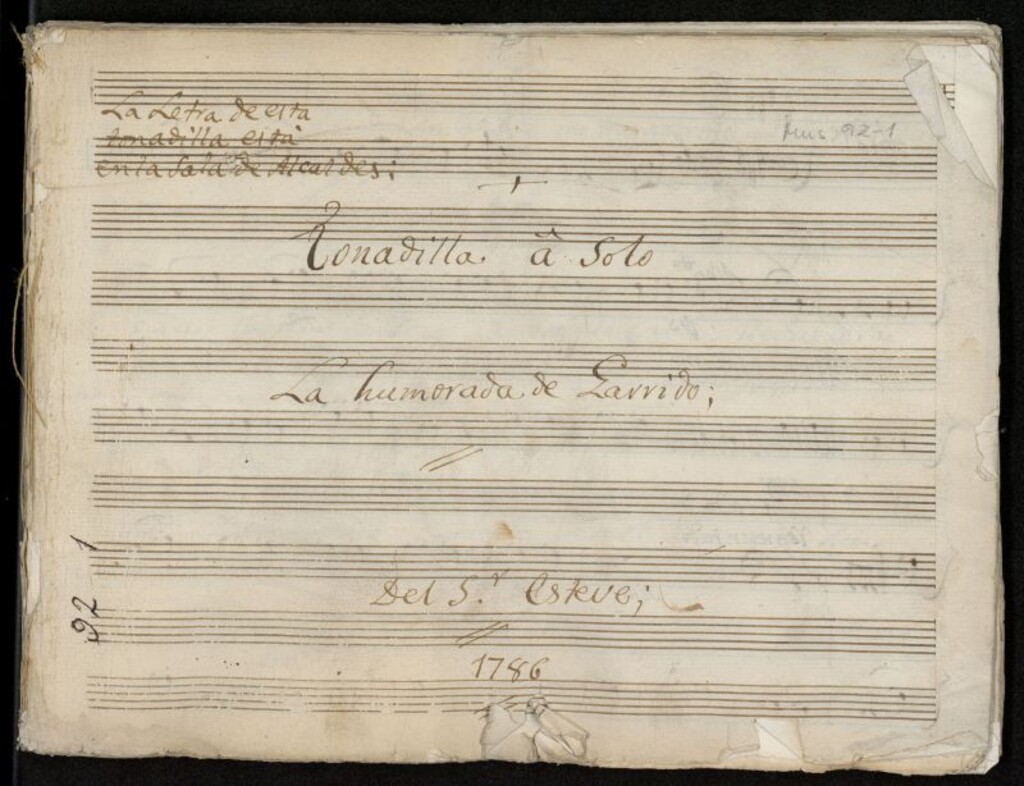 La Letra de esta
tonadilla está
en la Sala de Alcaldes;
Mus 92-1
Tonadilla â Solo
La humorada de Garrido;
Del S.r Esteve;
1786
92 1